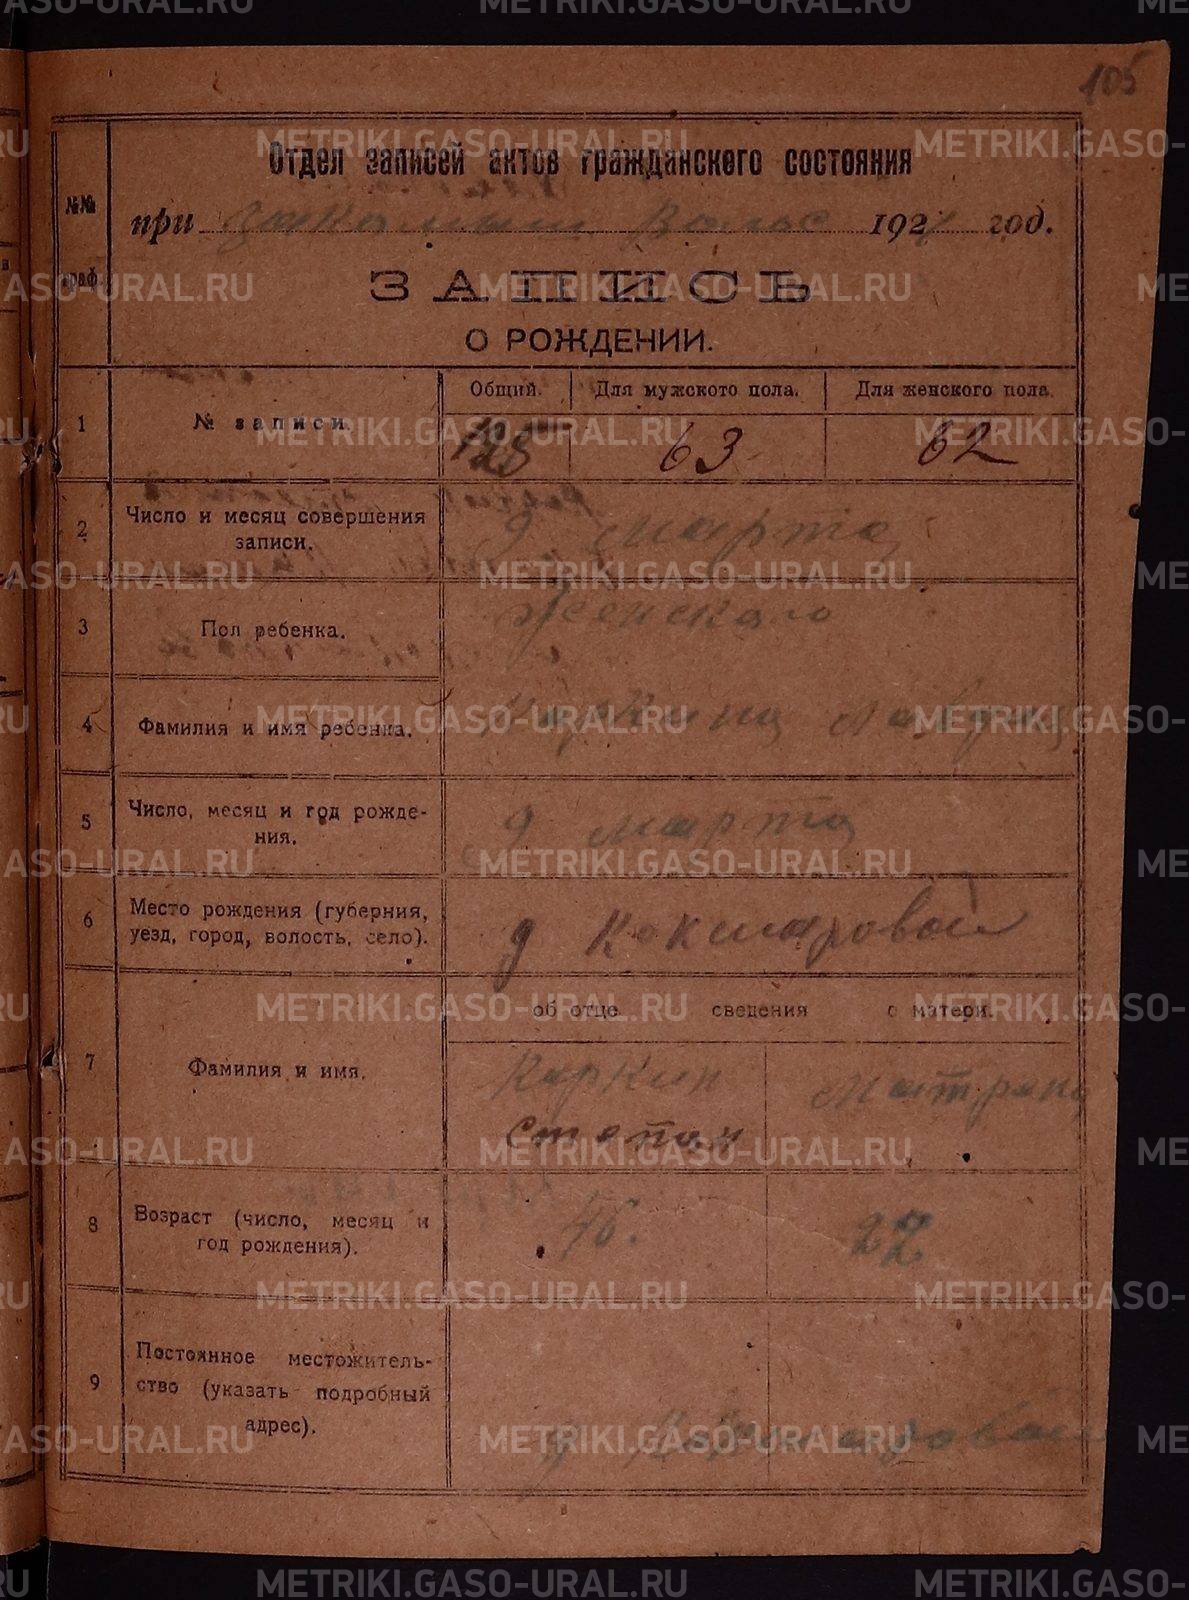 105
Отдел записей актов гражданского состояния
при Закамыш Волос 192 год.
№№ граф.
ЗАПИСЬ
О РОЖДЕНИИ.
1 № записи. Общий. Для мужского пола. Для женского пола.
125 63 62
2 Число и месяц совершения записи. 9 марта
3 Пол ребенка. Женскаго
4 Фамилия и имя ребенка. Каркина
5 Число, месяц и год рождения. 9 марта
6 Место рождения (губерния, уезд, город, волость, село). д Кокшаровой
об отце сведения о матери.
7 Фамилия и имя. Каркин Степан Матрена
8 Возраст (число, месяц и год рождения). 27
9 Постоянное местожительство (указать подробный адрес). д Кокшаровой
METRIKI.GASO-URAL.RU